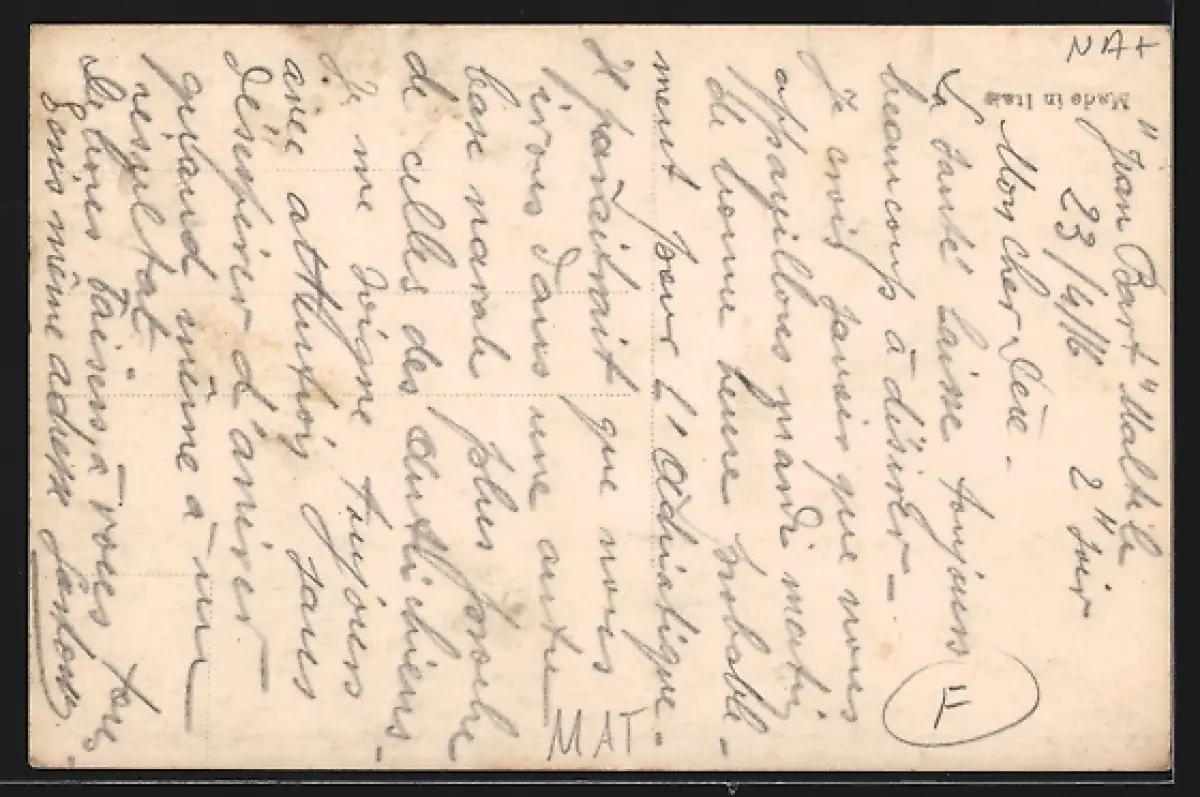 NA+
Made in Italy
"Jean Bart" Malte le
23/4/16 2" soir
Mon cher
La santé laisse toujours
beaucoup à désirer -
Je crois savoir que nous
appareillons mardi matin
de bonne heure probable-
ment pour l'Adriatique -
Il paraitrait que nous
irons dans une autre
base navale plus proche
de celles des autrichiens -
Je me soigne toujours
avec attention sans
désespérer d'arriver
quand même à un
résultat.
de bons baisers à vous tous
Suis même adresse
MAT